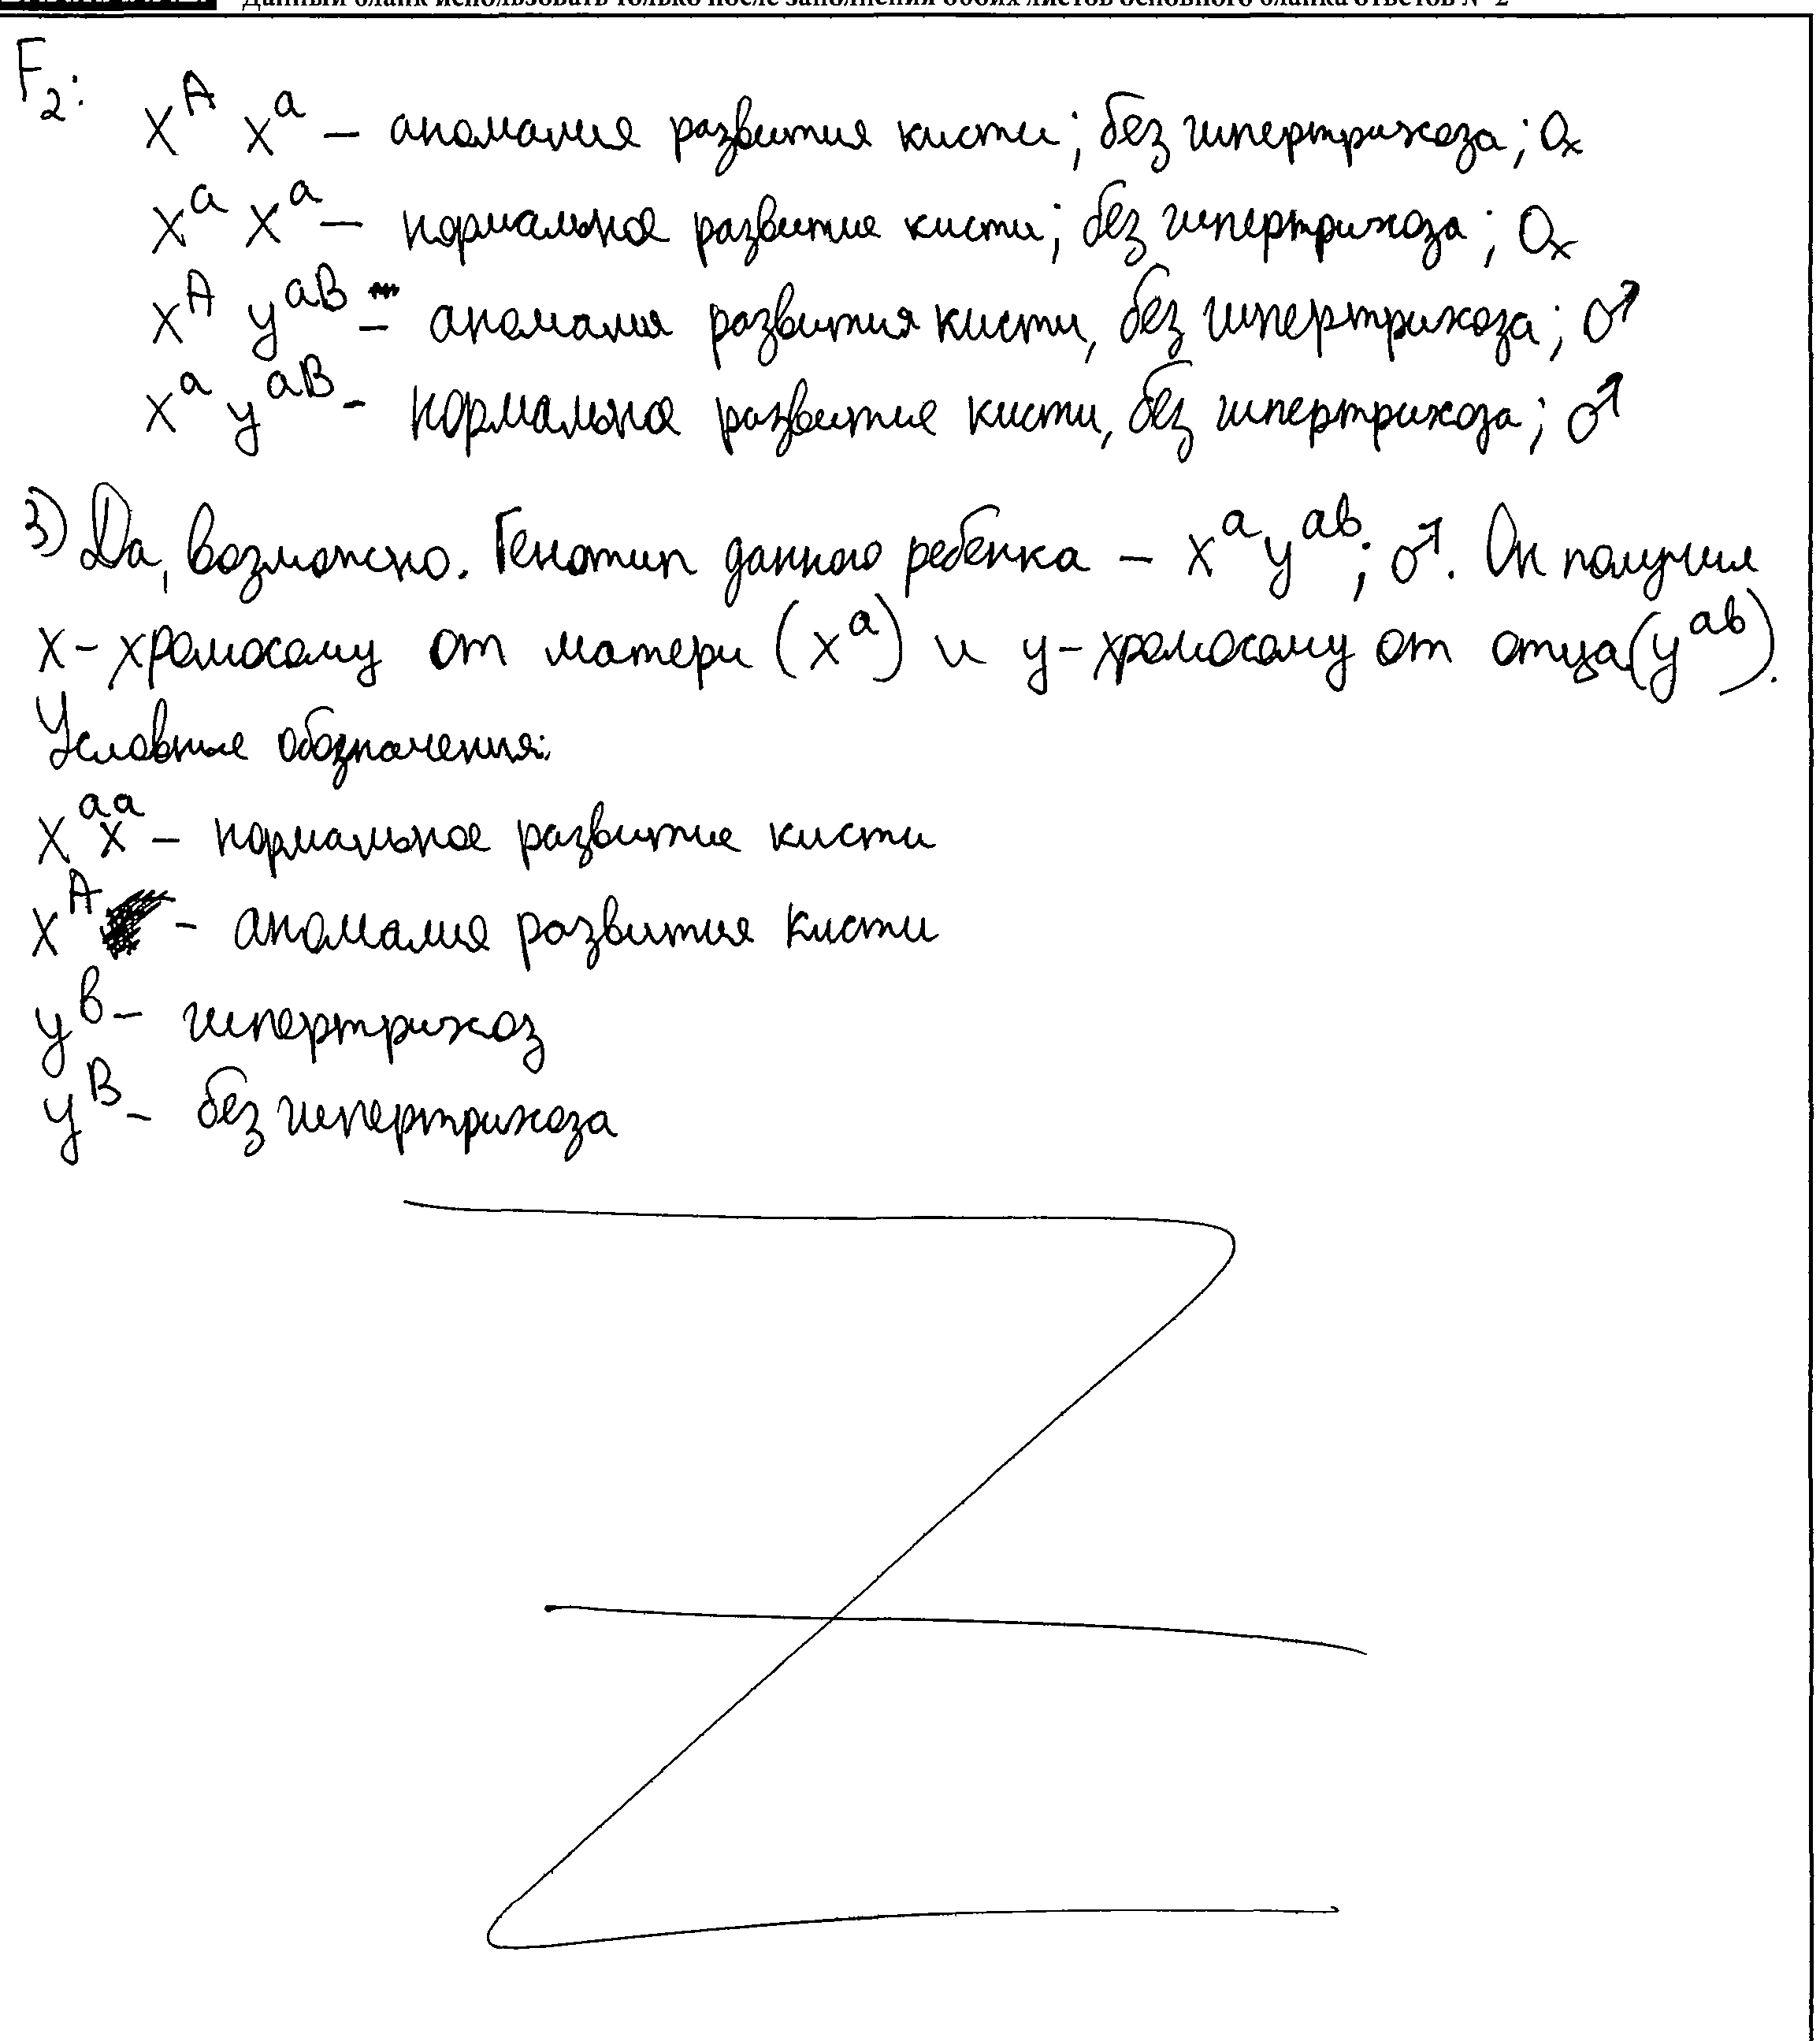 Данный бланк использовать только после заполнения обоих листов основного бланка ответов № 2
F₂:
X^A X^a – аномалия развития кисти; без гипертрихоза; ♀
X^a X^a – нормальное развитие кисти; без гипертрихоза; ♀
X^A y^aB – аномалия развития кисти, без гипертрихоза; ♂
X^a y^aB – нормальное развитие кисти, без гипертрихоза; ♂
3) Да, возможно. Генотип данного ребенка – X^a y^ab; ♂. Он получил
X-хромосому от матери (X^a) и y-хромосому от отца (y^ab).
Условные обозначения:
X^a X^a – нормальное развитие кисти
X^A – аномалия развития кисти
y^b – гипертрихоз
y^B – без гипертрихоза